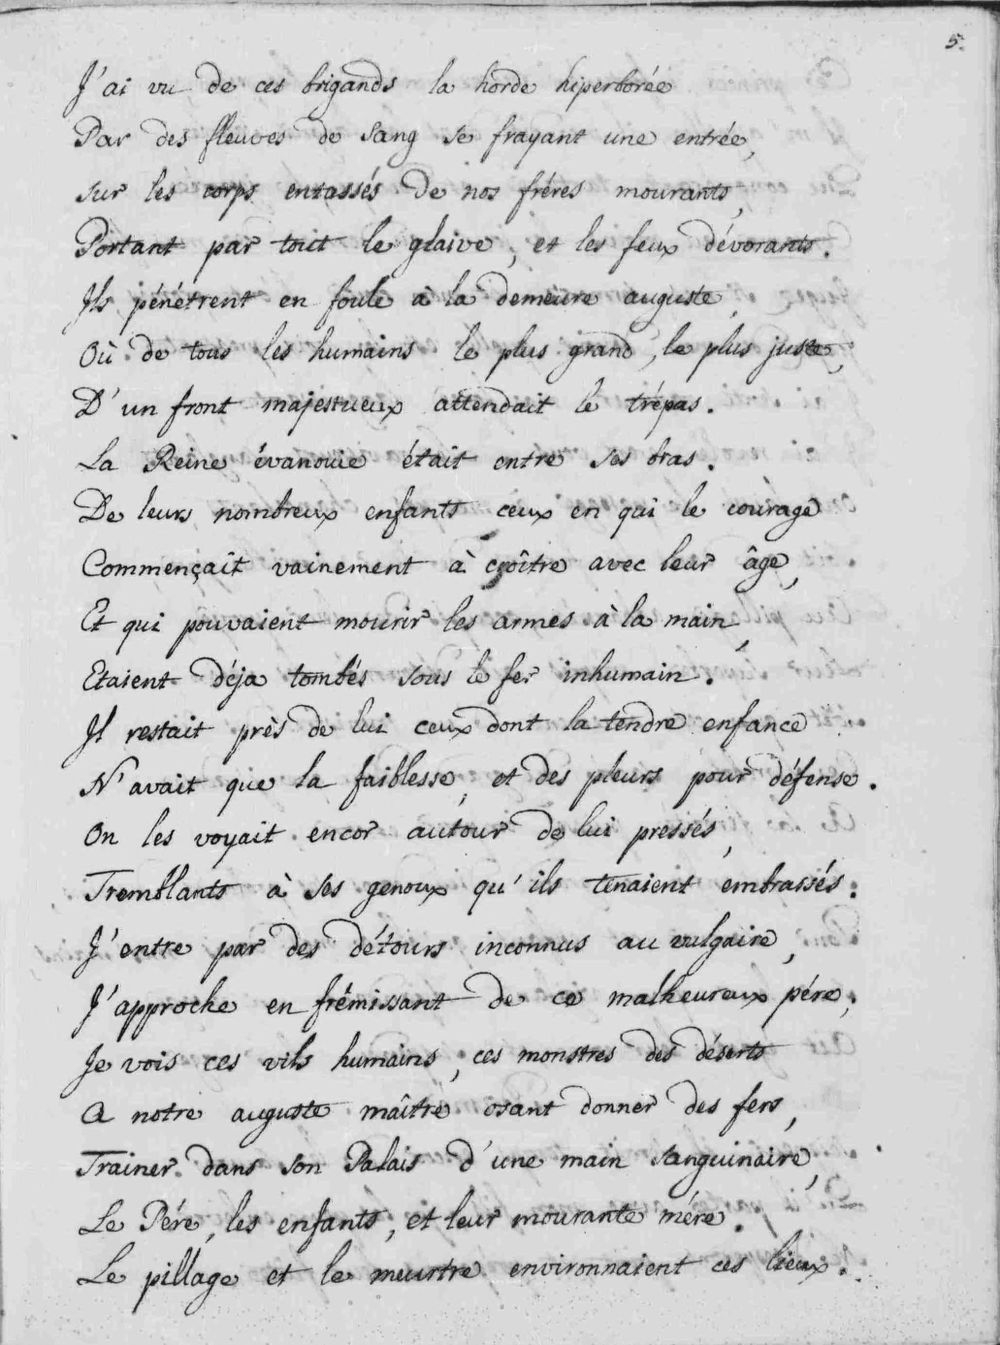 5.
J'ai vu de ces brigands la horde hiperborée
Par des fleuves de sang se frayant une entrée,
sur les corps entassés de nos fréres mourants,
Portant par tout le glaive, et les feux dévorants.
Ils pénétrent en foule à la demeure auguste,
Où de tous les humains le plus grand, le plus juste,
D'un front majestueux attendait le trépas.
La Reine évanouie était entre ses bras.
De leurs nombreux enfants ceux en qui le courage
Commençait vainement à croître avec leur âge,
Et qui pouvaient mourir les armes à la main,
Etaient déja tombés sous le fer inhumain.
Il restait près de lui ceux dont la tendre enfance
N'avait que la faiblesse, et des pleurs pour défense.
On les voyait encor autour de lui pressés,
Tremblants à ses genoux qu'ils tenaient embrassés.
J'entre par des détours inconnus au vulgaire,
J'approche en frémissant de ce malheureux pére,
Je vois ces vils humains, ces monstres des déserts
A notre auguste maître osant donner des fers,
Trainer dans son Palais d'une main sanguinaire,
Le Pére, les enfants, et leur mourante mére.
Le pillage et le meurtre environnaient ces lieux.